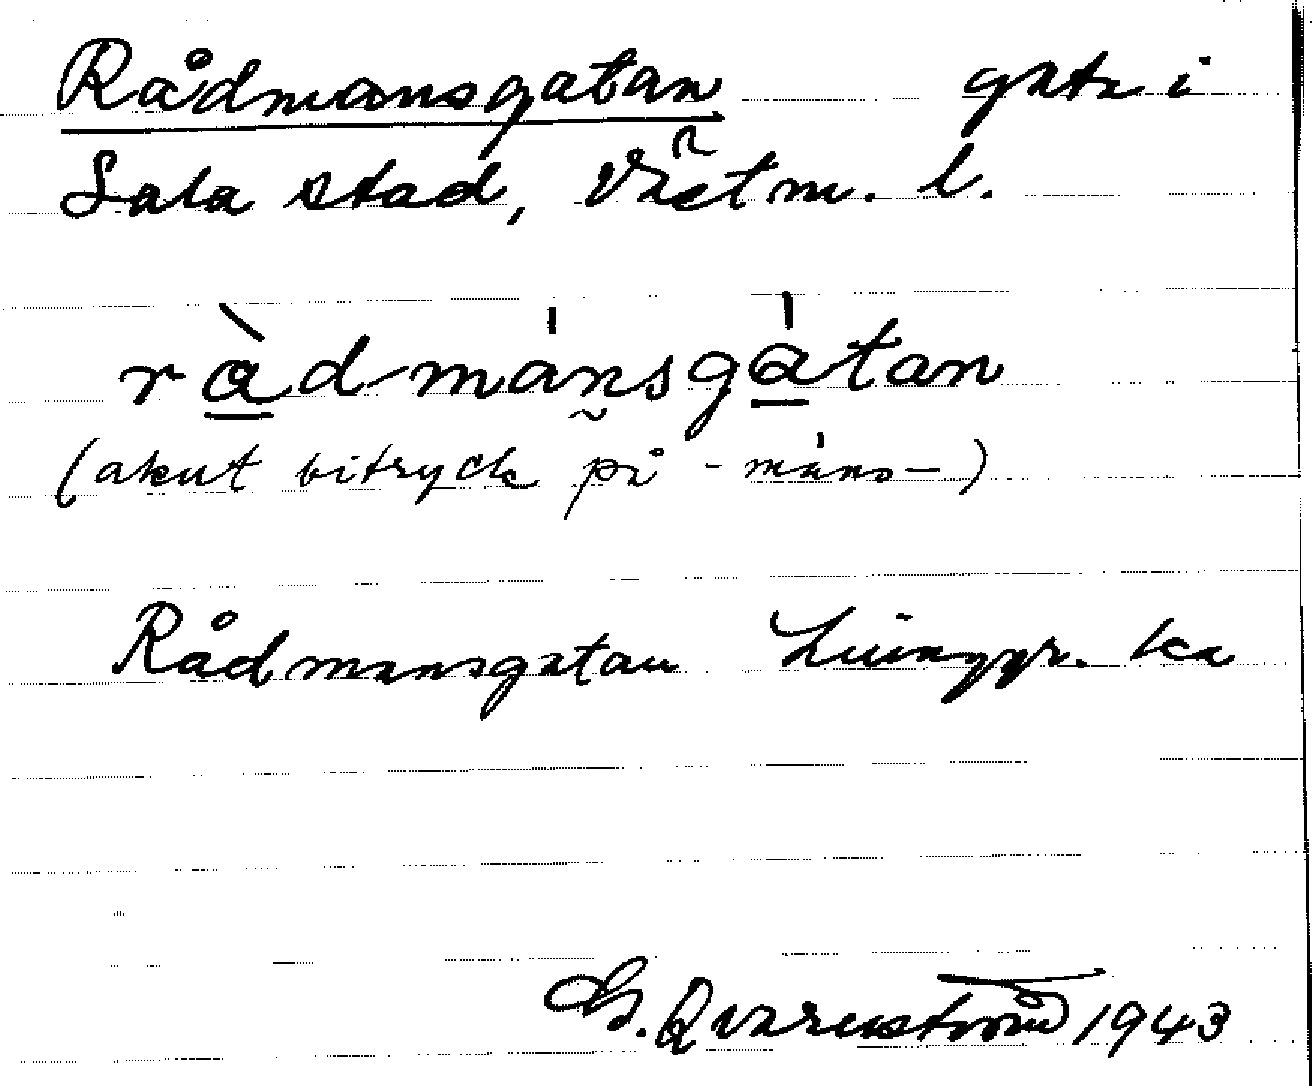 Rådmansgatan gata i
Sala stad, Västm. l.
ràdmánsgátan
(akut bitryck på -máns-)
Rådmansgatan Ljunggr. ka
G. Qvarnström 1943